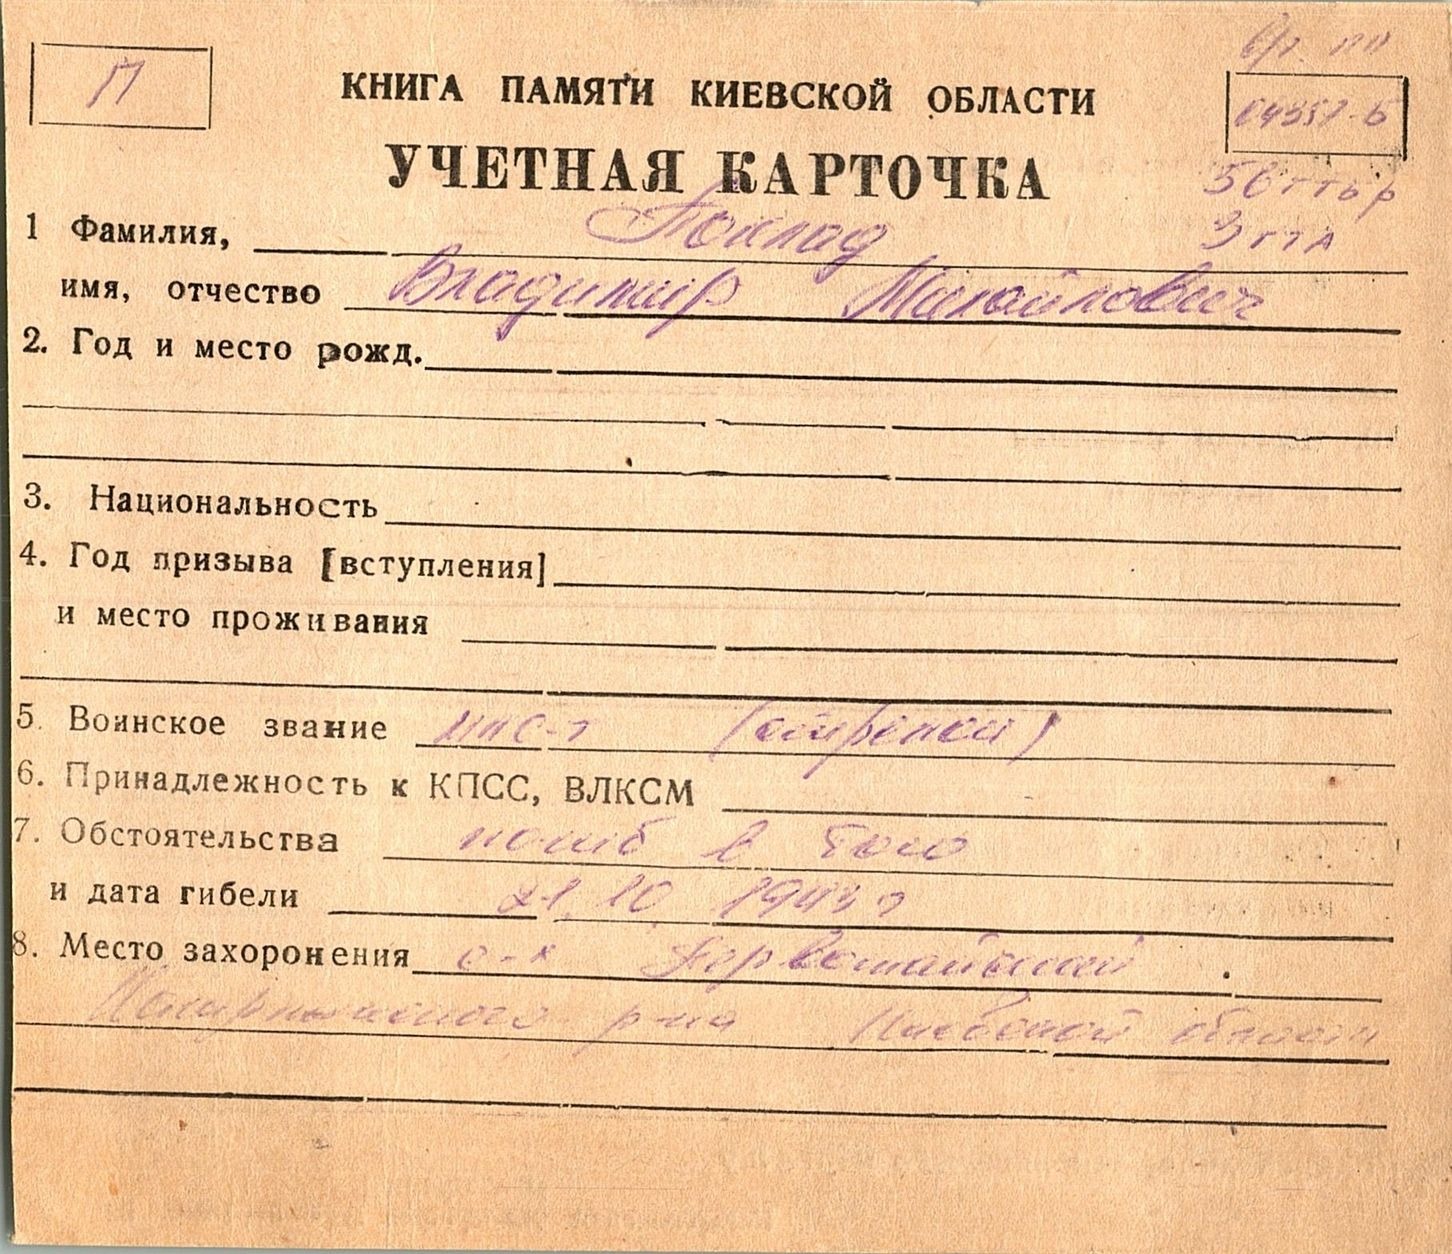 П
КНИГА ПАМЯТИ КИЕВСКОЙ ОБЛАСТИ
УЧЕТНАЯ КАРТОЧКА
56 гтбр
3 гтА
1 Фамилия, Поклад
имя, отчество Владимир Михайлович
2. Год и место рожд.
3. Национальность
4. Год призыва [вступления]
и место проживания
5. Воинское звание мл с-т
6. Принадлежность к КПСС, ВЛКСМ
7. Обстоятельства погиб в бою
и дата гибели 21.10 1943 г
8. Место захоронения с-х Первомайский
р-на Киевской области